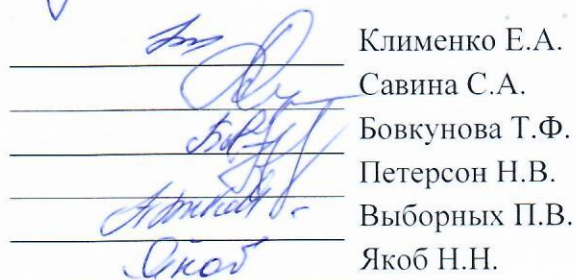 Клименко Е.А.
Савина С.А.
Бовкунова Т.Ф.
Петерсон Н.В.
Выборных П.В.
Якоб Якоб Н.Н.